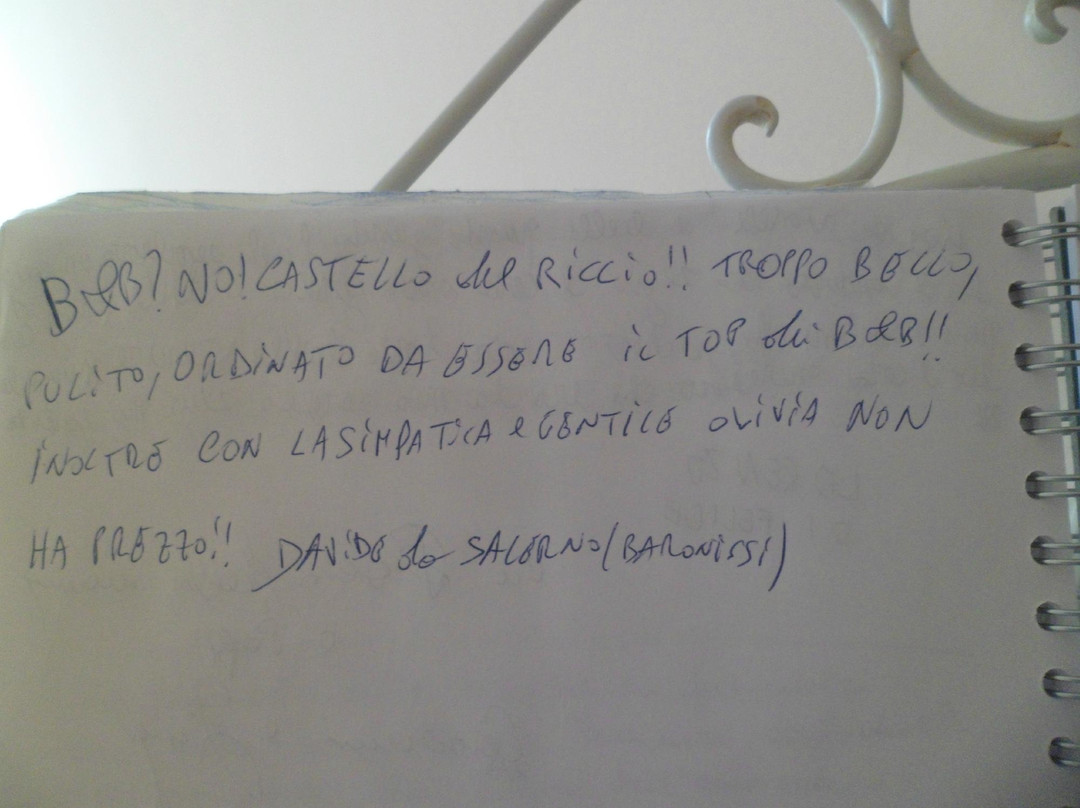 B&B? NO! CASTELLO del RICCIO!! TROPPO BELLO,
PULITO, ORDINATO DA ESSERE il TOP dei B&B!!
INOLTRE CON LA SIMPATICA e GENTILE OLIVIA NON
HA PREZZO!! DAVIDE da SALERNO (BARONISSI)